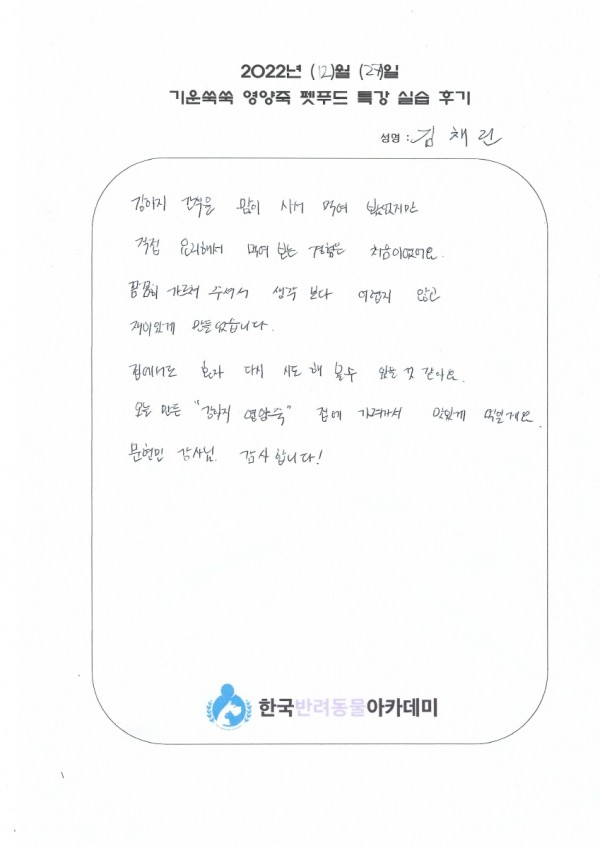 2022년 (12)월 (29)일
기운쑥쑥 영양죽 펫푸드 특강 실습 후기
성명 : 김채린
강아지 간식을 많이 사서 먹여 봤었지만
직접 요리해서 먹여 보는 경험은 처음이었어요.
꼼꼼히 가르쳐 주셔서 생각 보다 어렵지 않고
재미있게 만들었습니다.
집에서도 혼자 다시 시도 해 볼수 있을 것 같아요.
오늘 만든 "강아지 영양죽" 집에 가져가서 맛있게 먹일게요.
문현민 강사님. 감사합니다!
한국반려동물아카데미